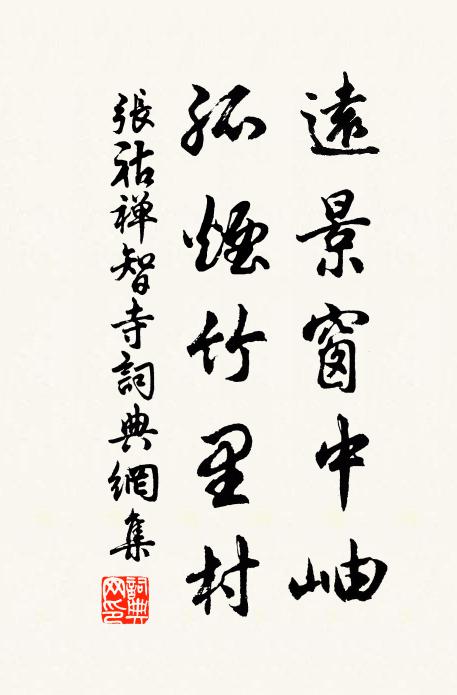 遠景窗中岫
孤煙竹里村
張祜禅智寺詞典網集
詞典網印